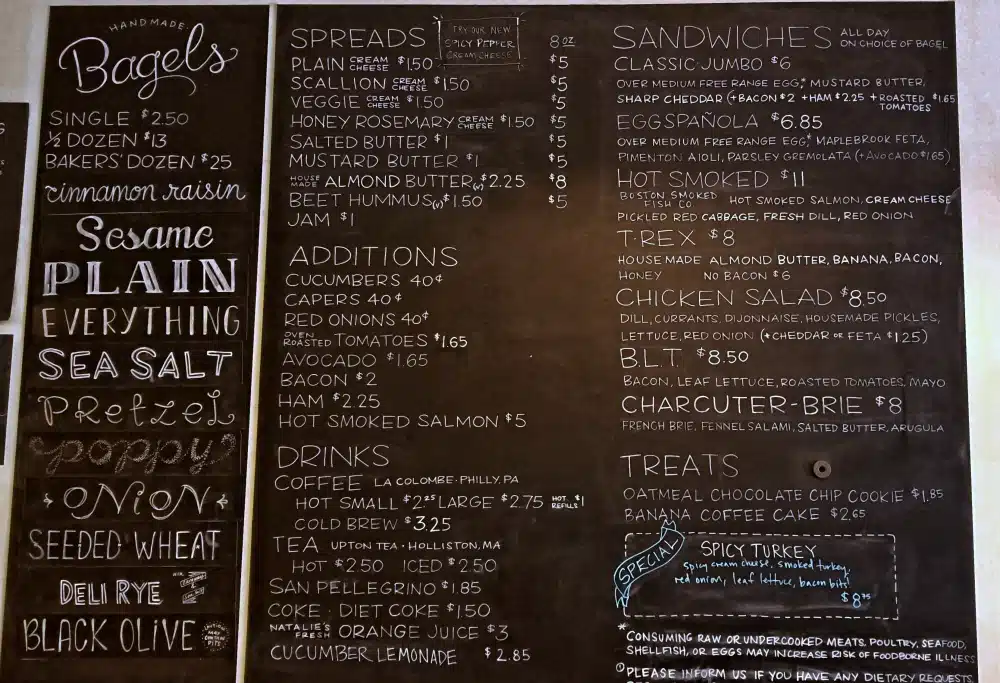 HANDMADE
Bagels
SINGLE $2.50
½ DOZEN $13
BAKERS' DOZEN $25
cinnamon raisin
Sesame
PLAIN
EVERYTHING
SEA SALT
PRETZEL
poppy
ONION
SEEDED WHEAT
DELI RYE
BLACK OLIVE
SPREADS
TRY OUR NEW
SPICY PEPPER
CREAM CHEESE
8 OZ.
PLAIN CREAM CHEESE $1.50 $5
SCALLION CREAM CHEESE $1.50 $5
VEGGIE CREAM CHEESE $1.50 $5
HONEY ROSEMARY CREAM CHEESE $1.50 $5
SALTED BUTTER $1 $5
MUSTARD BUTTER $1 $5
HOUSE MADE ALMOND BUTTER (v) $2.25 $8
BEET HUMMUS (v) $1.50 $5
JAM $1
ADDITIONS
CUCUMBERS 40¢
CAPERS 40¢
RED ONIONS 40¢
OVEN ROASTED TOMATOES $1.65
AVOCADO $1.65
BACON $2
HAM $2.25
HOT SMOKED SALMON $5
DRINKS
COFFEE LA COLOMBE · PHILLY, PA
HOT SMALL $2.25 LARGE $2.75 HOT REFILLS $1
COLD BREW $3.25
TEA UPTON TEA · HOLLISTON, MA
HOT $2.50 ICED $2.50
SAN PELLEGRINO $1.85
COKE · DIET COKE $1.50
NATALIE'S FRESH ORANGE JUICE $3
CUCUMBER LEMONADE $2.85
SANDWICHES ALL DAY
ON CHOICE OF BAGEL
CLASSIC·JUMBO $6
OVER MEDIUM FREE RANGE EGG,* MUSTARD BUTTER,
SHARP CHEDDAR (+BACON $2 +HAM $2.25 +ROASTED TOMATOES $1.65
EGGSPAÑOLA $6.85
OVER MEDIUM FREE RANGE EGG,* MAPLEBROOK FETA,
PIMENTON AIOLI, PARSLEY GREMOLATA (+AVOCADO $1.65)
HOT SMOKED $11
BOSTON SMOKED FISH CO. HOT SMOKED SALMON, CREAM CHEESE
PICKLED RED CABBAGE, FRESH DILL, RED ONION
T·REX $8
HOUSEMADE ALMOND BUTTER, BANANA, BACON,
HONEY NO BACON $6
CHICKEN SALAD $8.50
DILL, CURRANTS, DIJONNAISE, HOUSEMADE PICKLES,
LETTUCE, RED ONION (+CHEDDAR OR FETA $1.25)
B.L.T. $8.50
BACON, LEAF LETTUCE, ROASTED TOMATOES, MAYO
CHARCUTER-BRIE $8
FRENCH BRIE, FENNEL SALAMI, SALTED BUTTER, ARUGULA
TREATS
OATMEAL CHOCOLATE CHIP COOKIE $1.85
BANANA COFFEE CAKE $2.65
SPECIAL
SPICY TURKEY
spicy cream cheese, smoked turkey,
red onion, leaf lettuce, bacon bits!
$8.75
*CONSUMING RAW OR UNDERCOOKED MEATS, POULTRY, SEAFOOD,
SHELLFISH, OR EGGS MAY INCREASE RISK OF FOODBORNE ILLNESS
PLEASE INFORM US IF YOU HAVE ANY DIETARY REQUESTS